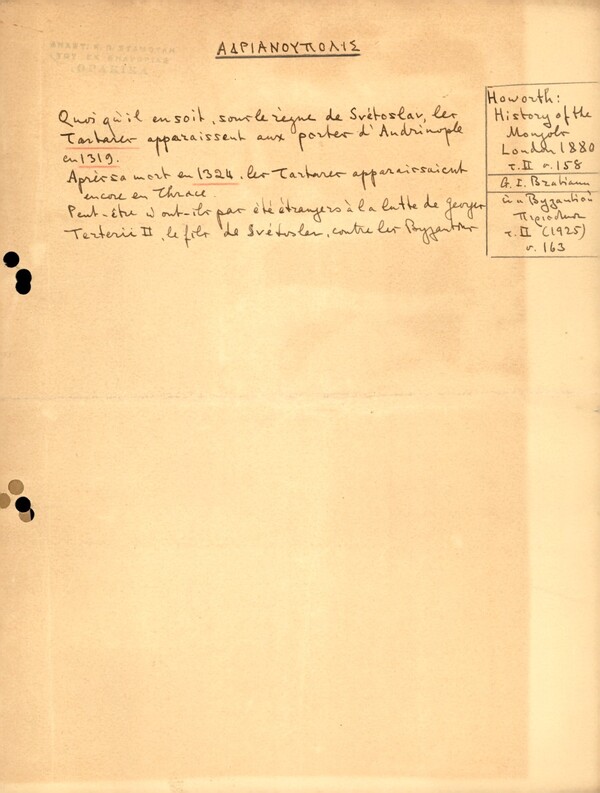 ΑΔΡΙΑΝΟΥΠΟΛΙΣ
Quoi qu'il en soit, sous le règne de Svétoslav, les
Tartares apparaissent aux portes d'Andrinople
en 1319.
Après sa mort en 1324, les Tartares apparaissaient
encore en Thrace.
Peut-être n'ont-ils pas été étrangers à la lutte de Georges
Terterii II, le fils de Svétoslav, contre les Byzantins
Howorth:
History of the
Mongols
London 1880
τ. II σ. 158
G. I. Bratianu
Βυζαντιον
τ. II (1925)
σ. 163